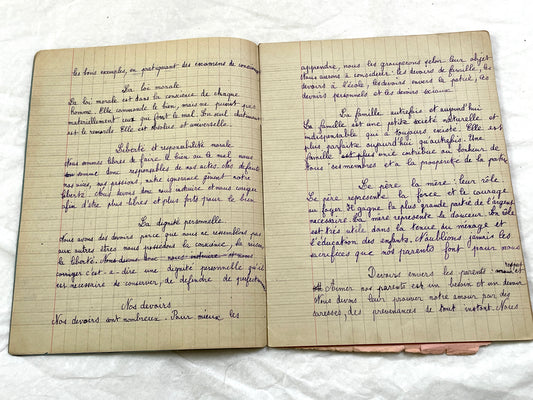 les bons exemples, en pratiquant les examens de conscience
La loi morale
La loi morale est dans la conscience de chaque
homme. Elle commande le bien, mais ne punit pas
matériellement ceux qui font le mal. Son seul châtiment
est le remords. Elle est absolue et universelle.
Liberté et responsabilité morale
Nous sommes libres de faire le bien ou le mal nous
sommes donc responsables de nos actes. Nos défauts
nos vices, nos passions, notre ignorance gênent notre
liberté. Nous devons donc nous instruire et nous corriger
afin d'être plus libres et plus forts pour le bien
La dignité personnelle
Nous avons des devoirs parce que nous ne ressemblons pas
aux autres êtres nous possédons la conscience, la raison
la liberté. Nous devons donc nous instruire et nous
corriger c'est-à-dire une dignité personnelle qu'il
est nécessaire de conserver, de défendre de perfectionner
Nos devoirs
Nos devoirs sont nombreux. Pour mieux les
apprendre, nous les grouperons selon leur objet
Nous aurons à considérer : les devoirs de famille, les
devoirs à l'école, les devoirs envers la patrie, les
devoirs personnels et les devoirs sociaux.
La famille autrefois et aujourd'hui
La famille est une petite société naturelle et
indispensable qui a toujours existé. Elle est
plus parfaite aujourd'hui qu'autrefois. Une
famille est plus unie contribue au bonheur de
tous ses membres et à la prospérité de la patrie
Le père la mère : leur rôle
Le père représente la force et le courage
au foyer. Il gagne la plus grande partie de l'argent
nécessaire La mère représente la douceur. Son rôle
est très utile dans la tenue du ménage et
l'éducation des enfants. N'oublions jamais les
sacrifices que nos parents font pour nous
Devoirs envers les parents : amour et respect
Aimer nos parents est un besoin et un devoir
Nous devons leur prouver notre amour par des
caresses, des prévenances de tout instant. Nous